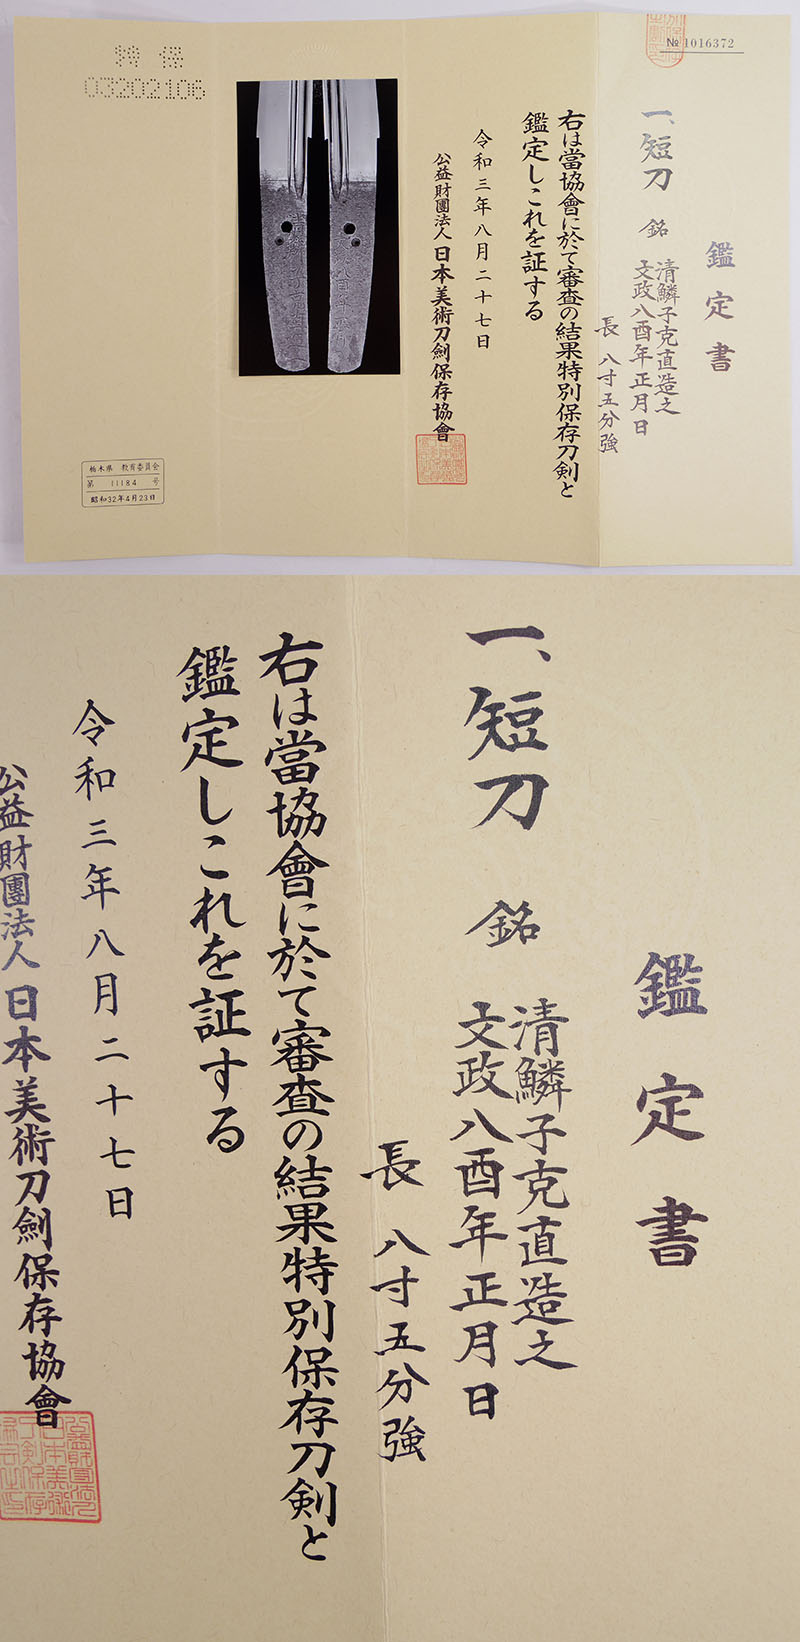 № 1016372
鑑定書
一、短刀 銘 清鱗子克直造之
文政八酉年正月日
長 八寸五分強
右は當協會に於て審査の結果特別保存刀剣と
鑑定しこれを証する
令和三年八月二十七日
公益財團法人 日本美術刀劍保存協會
特保
03202106
栃木県 教育委員会
第 11184 号
昭和32年4月23日
鑑定書
一、短刀 銘 清鱗子克直造之
文政八酉年正月日
長 八寸五分強
右は當協會に於て審査の結果特別保存刀剣と
鑑定しこれを証する
令和三年八月二十七日
公益財團法人 日本美術刀劍保存協會